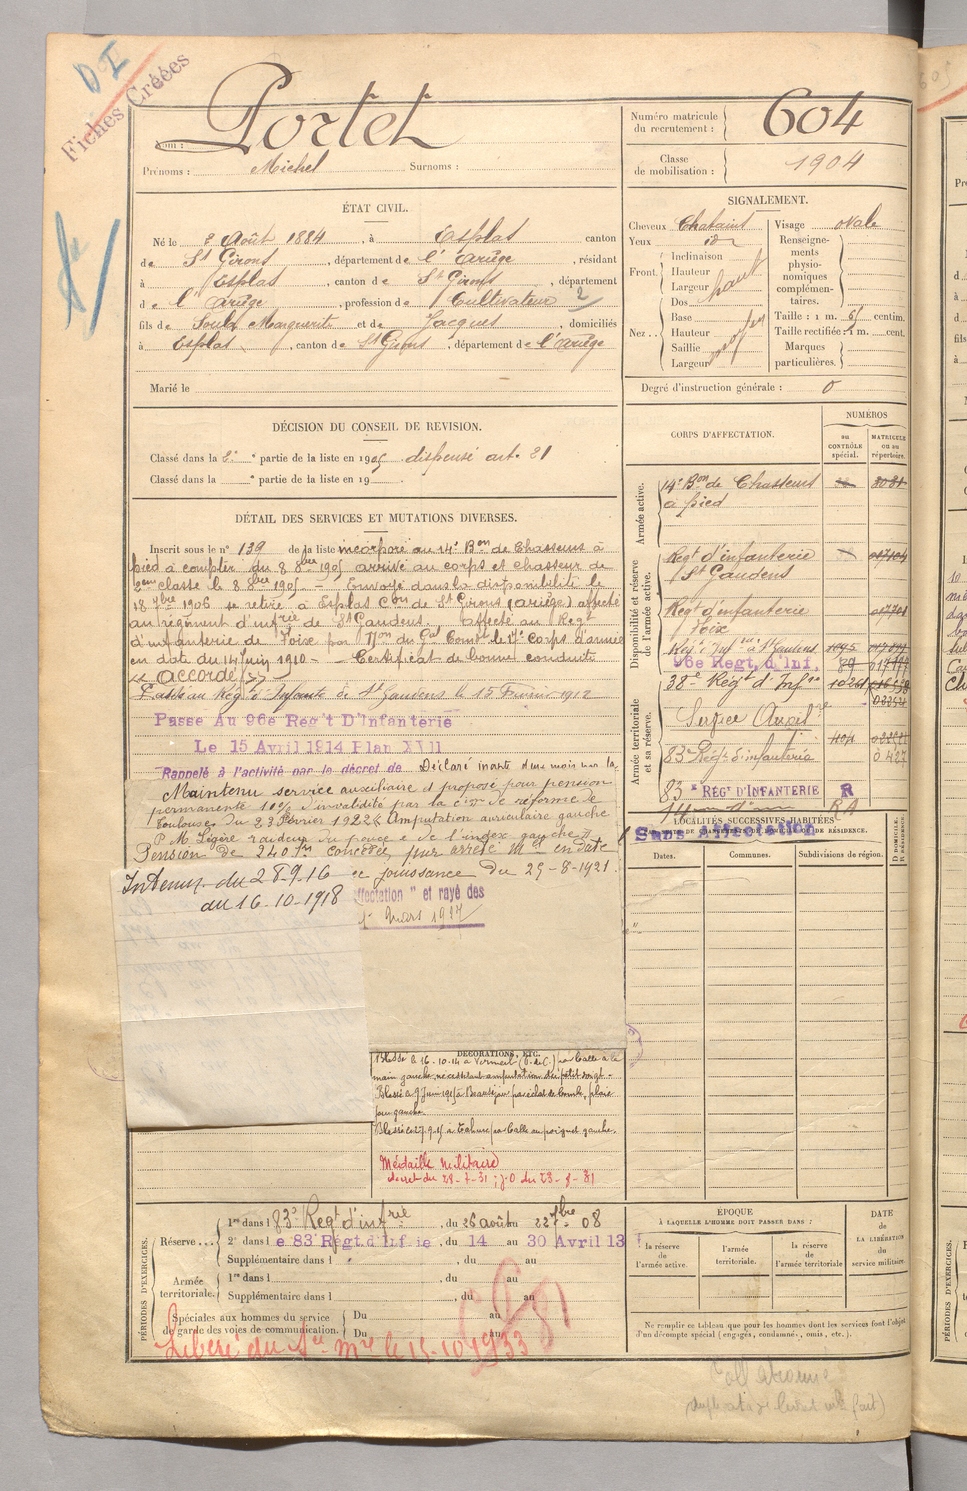 D I
Fiches Créées
Nom : Portet
Prénoms : Michel Surnoms :
Numéro matricule du recrutement : 604
Classe de mobilisation : 1904
ÉTAT CIVIL.
Né le 2 Août 1884, à Esplas canton
de St Girons, département de l'Ariège, résidant
à Esplas, canton de St Girons, département
de l'Ariège, profession de Cultivateur 2
fils de Soula Marguerite et de Jacques, domiciliés
à Esplas, canton de St Girons, département de l'Ariège
Marié le
SIGNALEMENT.
Cheveux Chatains Visage ovale
Yeux
Front. Inclinaison
Hauteur haut
Largeur
Nez .. Dos
Base
Hauteur
Saillie
Largeur
Renseignements physionomiques complémentaires.
Taille : 1 m. centim.
Taille rectifiée : 1 m. cent.
Marques particulières.
Degré d'instruction générale : 0
DÉCISION DU CONSEIL DE REVISION.
Classé dans la 2e partie de la liste en 1905 dispensé art. 21
Classé dans la partie de la liste en 19
DÉTAIL DES SERVICES ET MUTATIONS DIVERSES.
Inscrit sous le n° 139 de la liste incorporé au 14e Bon de Chasseurs à
pied à compter du 8 8bre 1905 arrivé au corps et chasseur de
2eme classe le 8 8bre 1905. - Envoyé dans la disponibilité le
18 7bre 1906 se retire à Esplas Con de St Girons (Ariège) affecté
au régiment d'infrie de St Gaudens. Affecté au Régt
d'infanterie de Foix par Don du Gal Comt le 17e Corps d'armée
en date du 14 Juin 1910 - Certificat de bonne conduite
" Accordé "
Passé au Régt d'Infantie de St Gaudens le 15 Février 1912
Passé Au 96e Rég't D'Infanterie
Le 15 Avril 1914 Plan XVII
Rappelé à l'activité par le décret de Déclaré inapte deux mois
Maintenu service auxiliaire et proposé pour pension
permanente 10% d'invalidité par la con de réforme de
Toulouse du 23 Février 1922 " Amputation auriculaire gauche
P M Légère raideur du pouce et de l'index gauche "
Pension de 240 frs concédée par arrêté Mel en date
jouissance du 25-8-1921.
Indemn. du 28-9-16
au 16-10-1918
ffectation " et rayé des
1er Mars 1927
CORPS D'AFFECTATION.
NUMÉROS
au CONTRÔLE spécial.
MATRICULE ou au répertoire.
Armée active.
14e Bon de Chasseurs 8081
à pied
Disponibilité et réserve de l'armée active.
Régt d'infanterie
St Gaudens
Régt d'infanterie
Foix
Régt d'Infie St Gaudens
96e Régt. d'Inf. 89
Armée territoriale et sa réserve.
38e Régt d'Infie
Service Auxilre
83e Régt d'infanterie
83 e RÉGt D'INFANTERIE R
RA
Sans Affectation
LOCALITÉS SUCCESSIVES HABITÉES
PAR SUITE DE CHANGEMENTS DE DOMICILE OU DE RÉSIDENCE.
Dates. Communes. Subdivisions de région. D DOMICILE. R RÉSIDENCE.
DÉCORATIONS, ETC.
Blessé le 16-10-14 à Vermeil (P. de C.) par balle à la
main gauche, nécessitant amputation du petit doigt -
Blessé le 9 Juin 1915 à Beauséjour par éclat de bombe, plaie
joue gauche.
Blessé le 27-9-15 à Tahure par balle au poignet gauche.
Médaille Militaire
décret du 28-7-31 ; J.O du 28-8-31
PÉRIODES D'EXERCICES.
Réserve ... 1re dans l 83e Régt d'infrie, du 26 août au 22 7bre 08
2e dans l e 83 Régt. d'Infie, du 14 au 30 Avril 13
Supplémentaire dans l , du au
Armée territoriale. 1re dans l , du au
Supplémentaire dans l , du au
Spéciales aux hommes du service de garde des voies de communication. Du au
Du au
Libéré du Sce mre le 15-10-1933
ÉPOQUE
À LAQUELLE L'HOMME DOIT PASSER DANS :
la réserve de l'armée active.
l'armée territoriale.
la réserve de l'armée territoriale
DATE de LA LIBÉRATION du service militaire.
Ne remplir ce tableau que pour les hommes dont les services font l'objet
d'un décompte spécial (engagés, condamnés, omis, etc.).